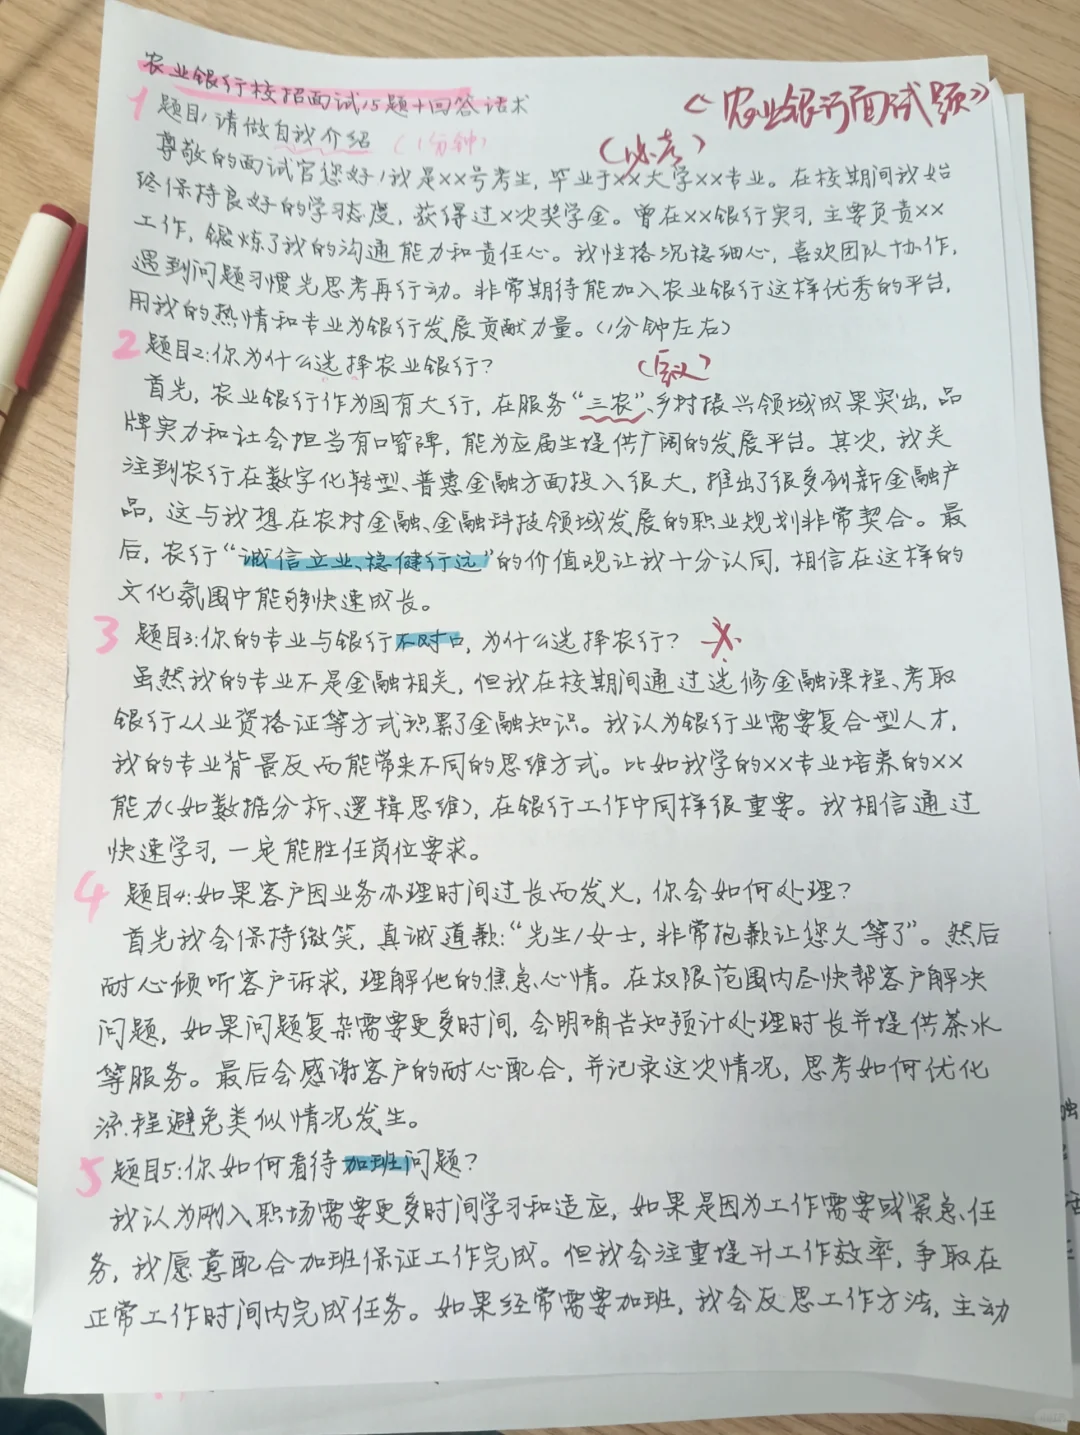 农业银行校招面试15题+回答话术
《农业银行面试题》
1 题目1请做自我介绍 (1分钟) (必考)
尊敬的面试官您好!我是××号考生,毕业于××大学××专业。在校期间我始
终保持良好的学习态度,获得过×次奖学金。曾在××银行实习,主要负责××
工作,锻炼了我的沟通能力和责任心。我性格沉稳细心,喜欢团队协作,
遇到问题习惯先思考再行动。非常期待能加入农业银行这样优秀的平台,
用我的热情和专业为银行发展贡献力量。(1分钟左右)
2 题目2:你为什么选择农业银行?
首先,农业银行作为国有大行,在服务“三农”、乡村振兴领域成果突出,品
牌实力和社会担当有口皆碑,能为应届生提供广阔的发展平台。其次,我关
注到农行在数字化转型、普惠金融方面投入很大,推出了很多创新金融产
品,这与我想在农村金融、金融科技领域发展的职业规划非常契合。最
后,农行“诚信立业、稳健行远”的价值观让我十分认同,相信在这样的
文化氛围中能够快速成长。
3 题目3:你的专业与银行不对口,为什么选择农行?
虽然我的专业不是金融相关,但我在校期间通过选修金融课程、考取
银行从业资格证等方式积累了金融知识。我认为银行业需要复合型人才,
我的专业背景反而能带来不同的思维方式。比如我学的××专业培养的××
能力(如数据分析、逻辑思维),在银行工作中同样很重要。我相信通过
快速学习,一定能胜任岗位要求。
4 题目4:如果客户因业务办理时间过长而发火,你会如何处理?
首先我会保持微笑,真诚道歉:“先生/女士,非常抱歉让您久等了”。然后
耐心倾听客户诉求,理解他的焦急心情。在权限范围内尽快帮客户解决
问题,如果问题复杂需要更多时间,会明确告知预计处理时长并提供茶水
等服务。最后会感谢客户的耐心配合,并记录这次情况,思考如何优化
流程避免类似情况发生。
5 题目5:你如何看待加班问题?
我认为刚入职场需要更多时间学习和适应,如果是因为工作需要或紧急任
务,我愿意配合加班保证工作完成。但我会注重提升工作效率,争取在
正常工作时间内完成任务。如果经常需要加班,我会反思工作方法,主动